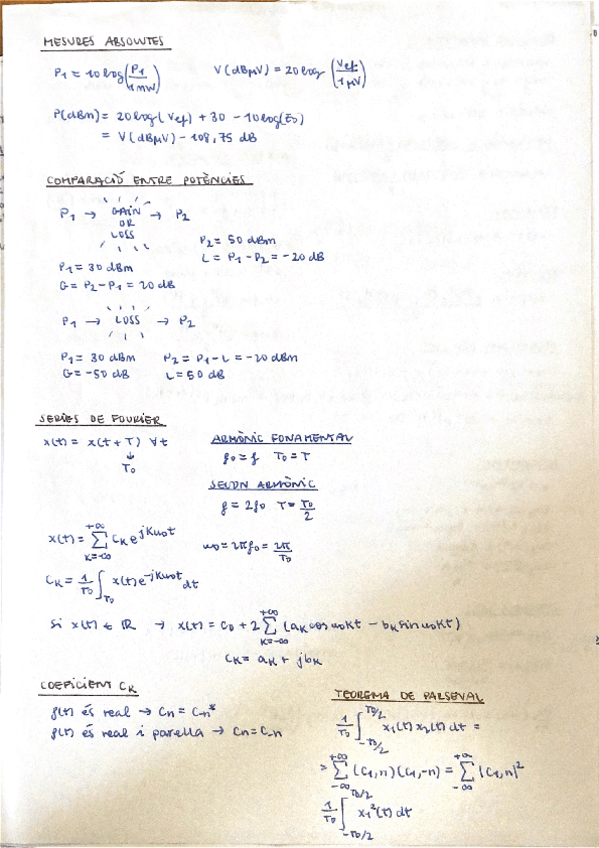 MESURES ABSOLUTES
P1 = 10log(P1/1mW)    V(dBµV) = 20log(Vef/1µV)
P(dBm) = 20log(Vef) + 30 - 10log(50)
= V(dBµV) - 108,75 dB
COMPARACIÓ ENTRE POTÈNCIES
P1 → GAIN OR LOSS → P2
P2 = 50 dBm
L = P1 - P2 = -20 dB
P1 = 30 dBm
G = P2 - P1 = 20 dB
P1 → LOSS → P2
P1 = 30 dBm    P2 = P1 - L = -20 dBm
G = -50 dB    L = 50 dB
SERIES DE FOURIER
x(t) = x(t+T) ∀t
↓
T0
ARMÒNIC FONAMENTAL
f0 = f    T0 = T
SEGON ARMÒNIC
f = 2f0    T = T0/2
x(t) = ∑_{K=-∞}^{+∞} CK e^{jKω0t}    ω0 = 2πf0 = 2π/T0
CK = 1/T0 ∫_{T0} x(t) e^{-jKω0t} dt
Si x(t) ∈ ℝ → x(t) = C0 + 2 ∑_{K=-∞}^{+∞} (aK cos ω0Kt - bK sin ω0Kt)
CK = aK + jbK
COEFICIENT CK
f(t) és real → Cn = C-n*
f(t) és real i parella → Cn = C-n
TEOREMA DE PARSEVAL
1/T0 ∫_{-T0/2}^{T0/2} x1(t) x2(t) dt =
= ∑_{-∞}^{+∞} (C1,n)(C1,-n) = ∑_{-∞}^{+∞} |C1,n|²
1/T0 ∫_{-T0/2}^{T0/2} x1²(t) dt